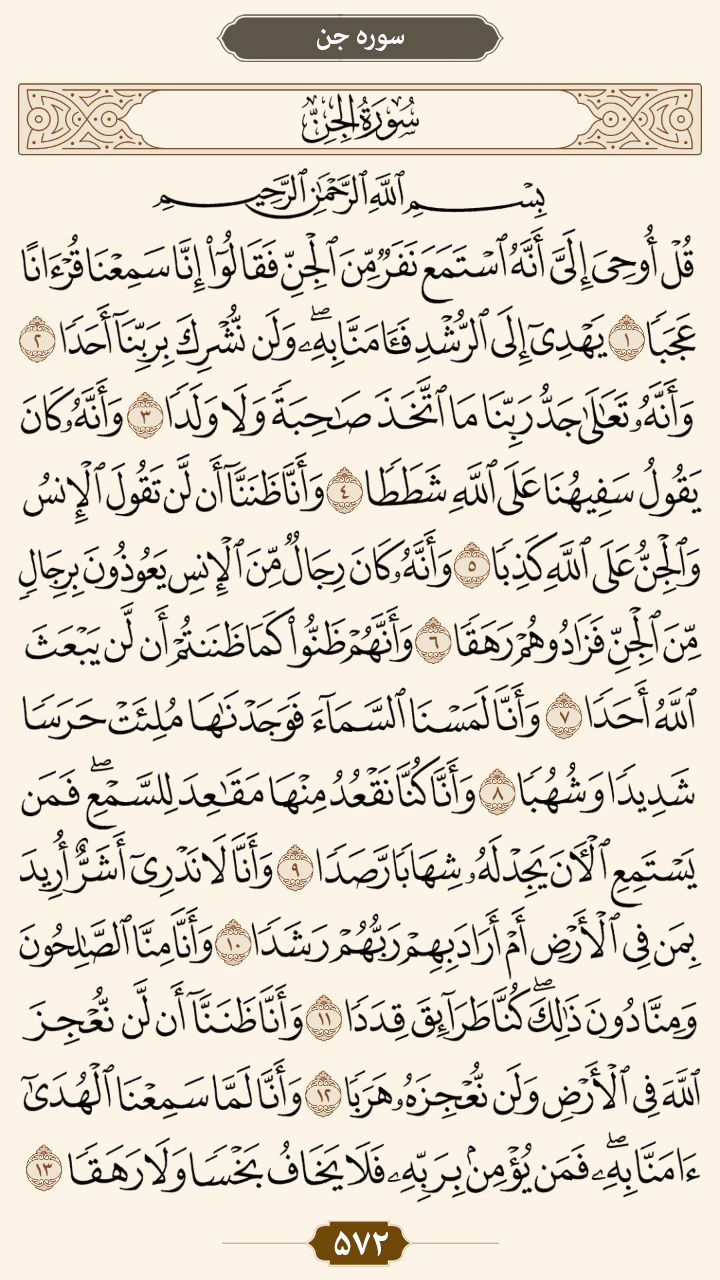 سوره جن
سُورَةُ الجِنِّ
بِسْمِ ٱللَّهِ ٱلرَّحْمَٰنِ ٱلرَّحِيمِ
قُلْ أُوحِىَ إِلَىَّ أَنَّهُ ٱسْتَمَعَ نَفَرٌ مِّنَ ٱلْجِنِّ فَقَالُوٓا۟ إِنَّا سَمِعْنَا قُرْءَانًا
عَجَبًا ١ يَهْدِىٓ إِلَى ٱلرُّشْدِ فَـَٔامَنَّا بِهِۦۖ وَلَن نُّشْرِكَ بِرَبِّنَآ أَحَدًا ٢
وَأَنَّهُۥ تَعَٰلَىٰ جَدُّ رَبِّنَا مَا ٱتَّخَذَ صَٰحِبَةً وَلَا وَلَدًا ٣ وَأَنَّهُۥ كَانَ
يَقُولُ سَفِيهُنَا عَلَى ٱللَّهِ شَطَطًا ٤ وَأَنَّا ظَنَنَّآ أَن لَّن تَقُولَ ٱلْإِنسُ
وَٱلْجِنُّ عَلَى ٱللَّهِ كَذِبًا ٥ وَأَنَّهُۥ كَانَ رِجَالٌ مِّنَ ٱلْإِنسِ يَعُوذُونَ بِرِجَالٍ
مِّنَ ٱلْجِنِّ فَزَادُوهُمْ رَهَقًا ٦ وَأَنَّهُمْ ظَنُّوا۟ كَمَا ظَنَنتُمْ أَن لَّن يَبْعَثَ
ٱللَّهُ أَحَدًا ٧ وَأَنَّا لَمَسْنَا ٱلسَّمَآءَ فَوَجَدْنَٰهَا مُلِئَتْ حَرَسًا
شَدِيدًا وَشُهُبًا ٨ وَأَنَّا كُنَّا نَقْعُدُ مِنْهَا مَقَٰعِدَ لِلسَّمْعِۖ فَمَن
يَسْتَمِعِ ٱلْـَٔانَ يَجِدْ لَهُۥ شِهَابًا رَّصَدًا ٩ وَأَنَّا لَا نَدْرِىٓ أَشَرٌّ أُرِيدَ
بِمَن فِى ٱلْأَرْضِ أَمْ أَرَادَ بِهِمْ رَبُّهُمْ رَشَدًا ١٠ وَأَنَّا مِنَّا ٱلصَّٰلِحُونَ
وَمِنَّا دُونَ ذَٰلِكَۖ كُنَّا طَرَآئِقَ قِدَدًا ١١ وَأَنَّا ظَنَنَّآ أَن لَّن نُّعْجِزَ
ٱللَّهَ فِى ٱلْأَرْضِ وَلَن نُّعْجِزَهُۥ هَرَبًا ١٢ وَأَنَّا لَمَّا سَمِعْنَا ٱلْهُدَىٰٓ
ءَامَنَّا بِهِۦۖ فَمَن يُؤْمِنۢ بِرَبِّهِۦ فَلَا يَخَافُ بَخْسًا وَلَا رَهَقًا ١٣
۵۷۲